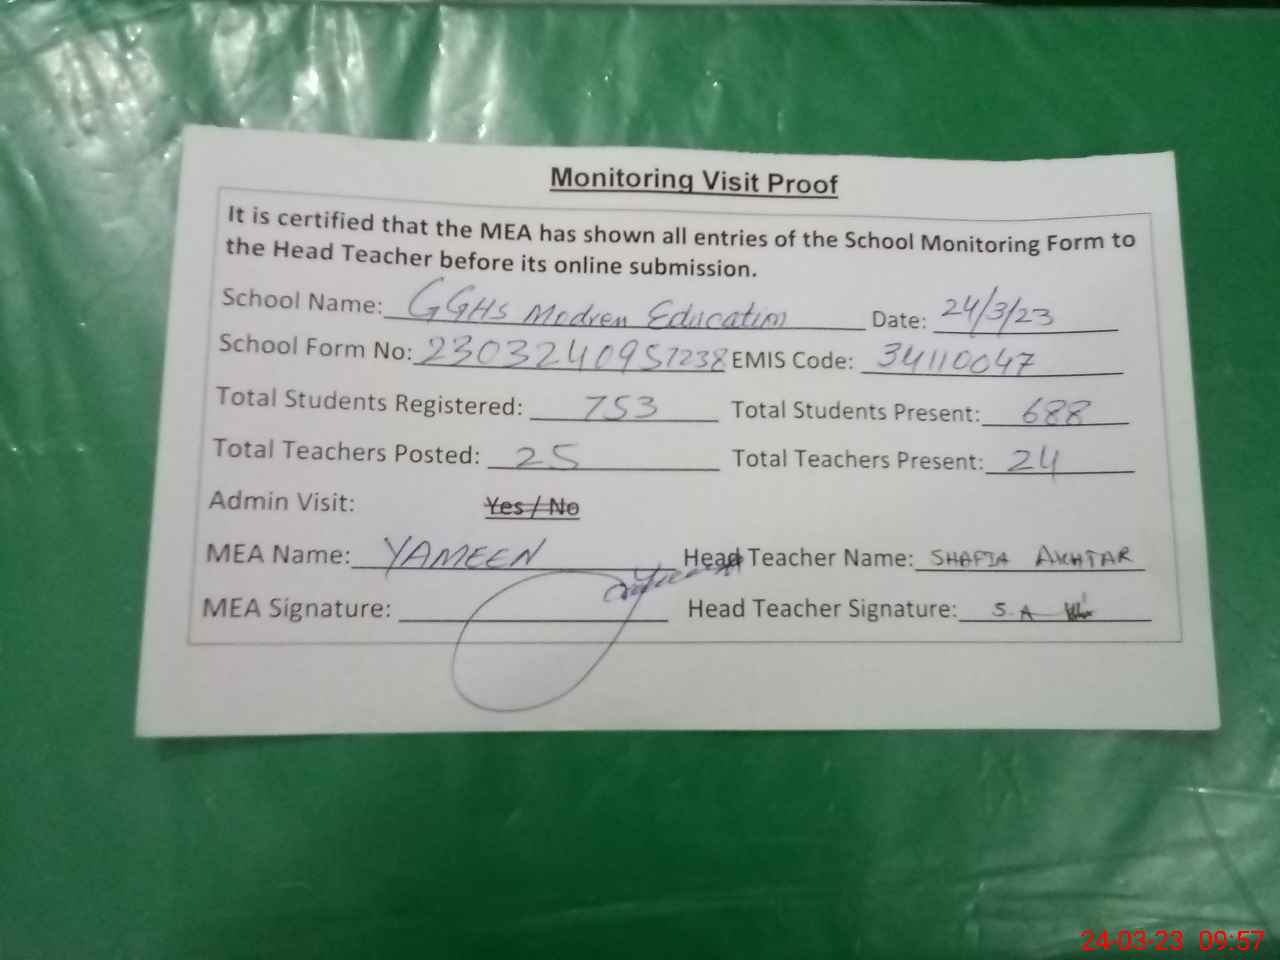 Monitoring Visit Proof
It is certified that the MEA has shown all entries of the School Monitoring Form to
the Head Teacher before its online submission.
School Name: GGHS Modren Education Date: 24/3/23
School Form No: 2303240957238 EMIS Code: 34110047
Total Students Registered: 753 Total Students Present: 688
Total Teachers Posted: 25 Total Teachers Present: 24
Admin Visit: Yes / No
MEA Name: YAMEEN Head Teacher Name: SHAFIA AKHTAR
MEA Signature: Head Teacher Signature: S.A
24-03-23 09:57